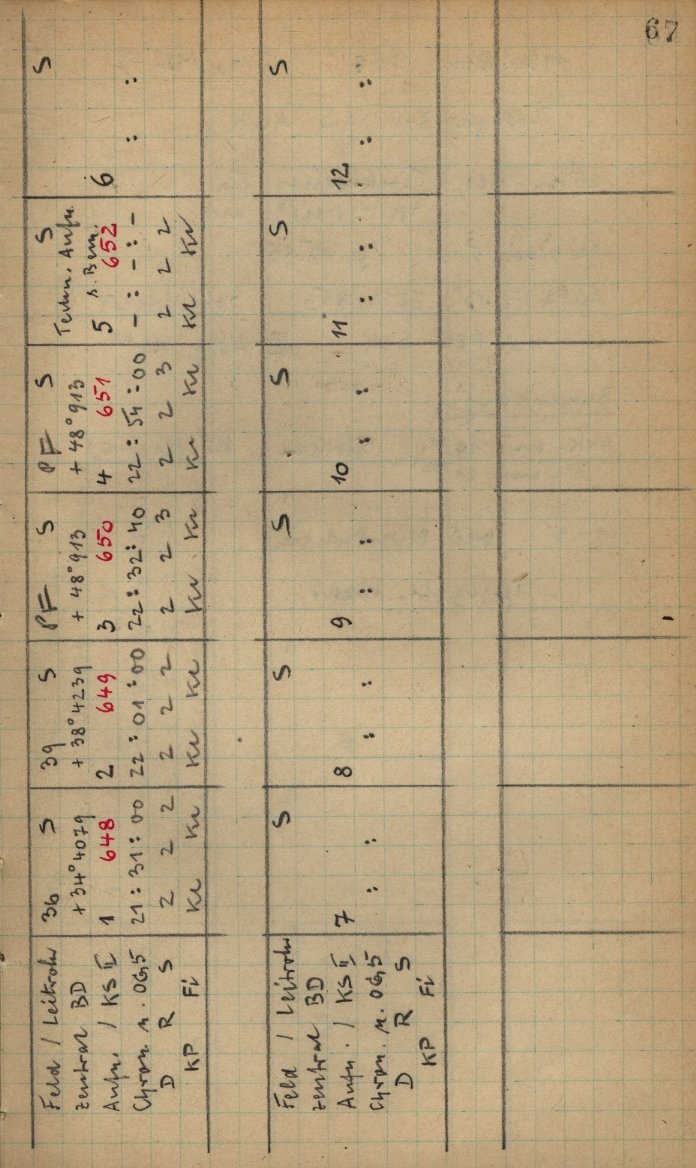 67
Feld / Leitrohr 36 S 39 S PF S PF S Techn. Aufn. S S
zentral BD +34°4079 +38°4239 +48°913 +48°913 s. Bem.
Aufn. / KS II 1 648 2 649 3 650 4 651 5 652 6
Chron. n. 21:31:00 22:01:00 22:32:40 22:54:00 -:-:- : :
D R S 2 2 2 2 2 2 2 2 3 2 2 3 2 2 2
KP Fi Kr Kr Kr Kr Kr Kr Kr Kr Kr Kr
Feld / Leitrohr S S S S S S
zentral BD
Aufn. / KS II 7 8 9 10 11 12
Chron. n. : : : : : : : : : : : :
D R S
KP Fi